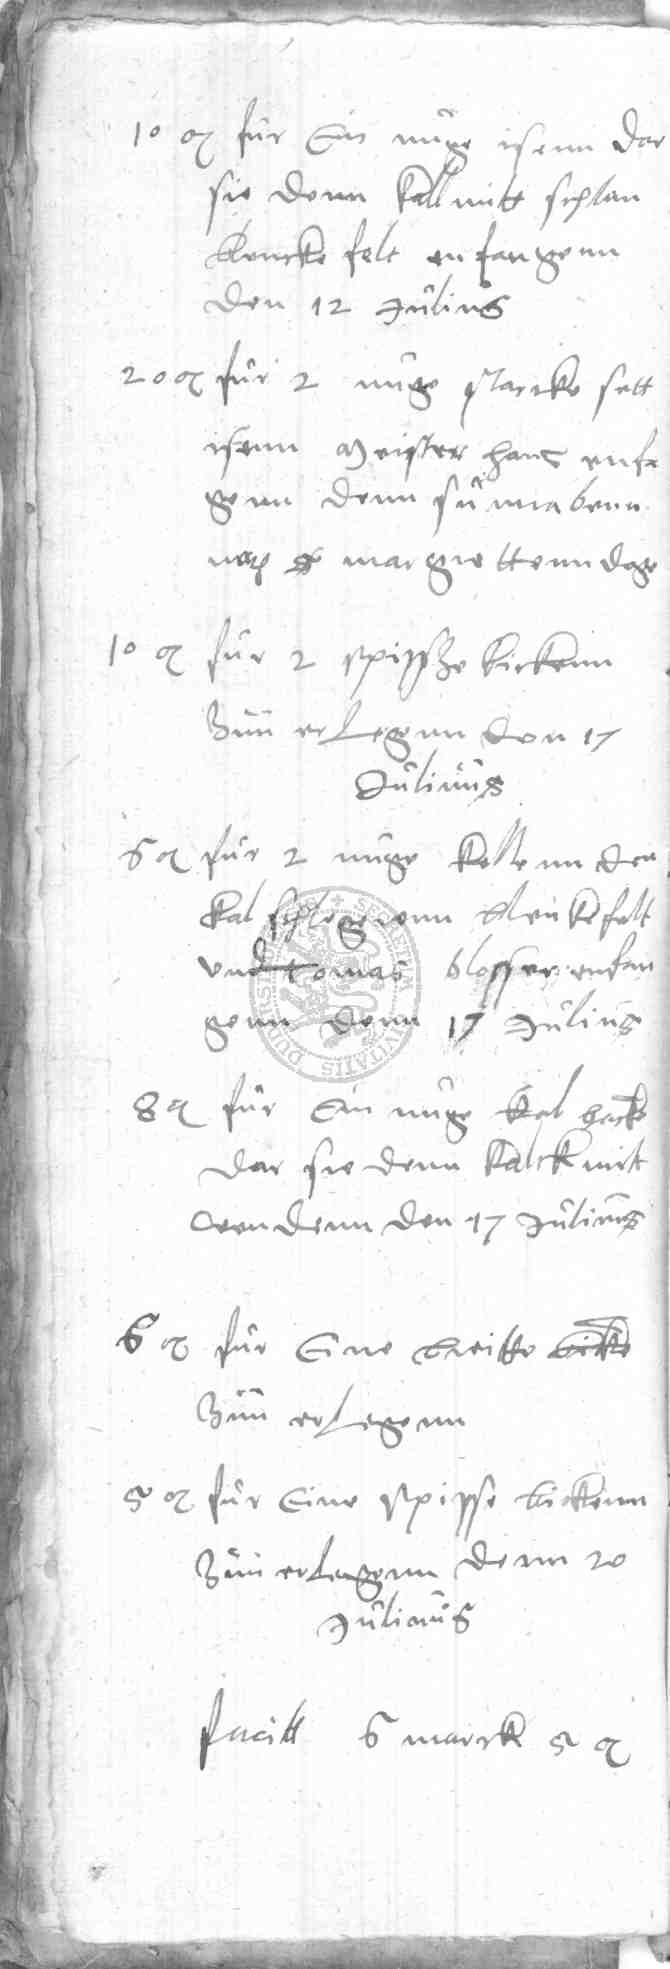 10 ß für Ein nüge isenn dar
sie denn kall mitt schlan
blenckefelt enfangenn
den 12 Jülius
20 ß für 2 nüge starcke sett
isenn Meister hans enfa
genn denn sünnabenn
margrettenn dage
10 ß für 2 spissze bickenn
Zuu erlegenn den 17
Jülius
6 ß für 2 nüge kellenn den
kal blenkefelt
und tomas blosser enfan
genn denn 17 Jülius
8 ß für Ein nüge kal hacke
dar sie denn kalck mit
wendenn den 17 Jülius
6 ß für Eine breitte bicke
Zuu erlegenn
5 ß für Eine spisse bickenn
Zuu erlegenn denn 20
Jülius
facitt 6 marck 5 ß